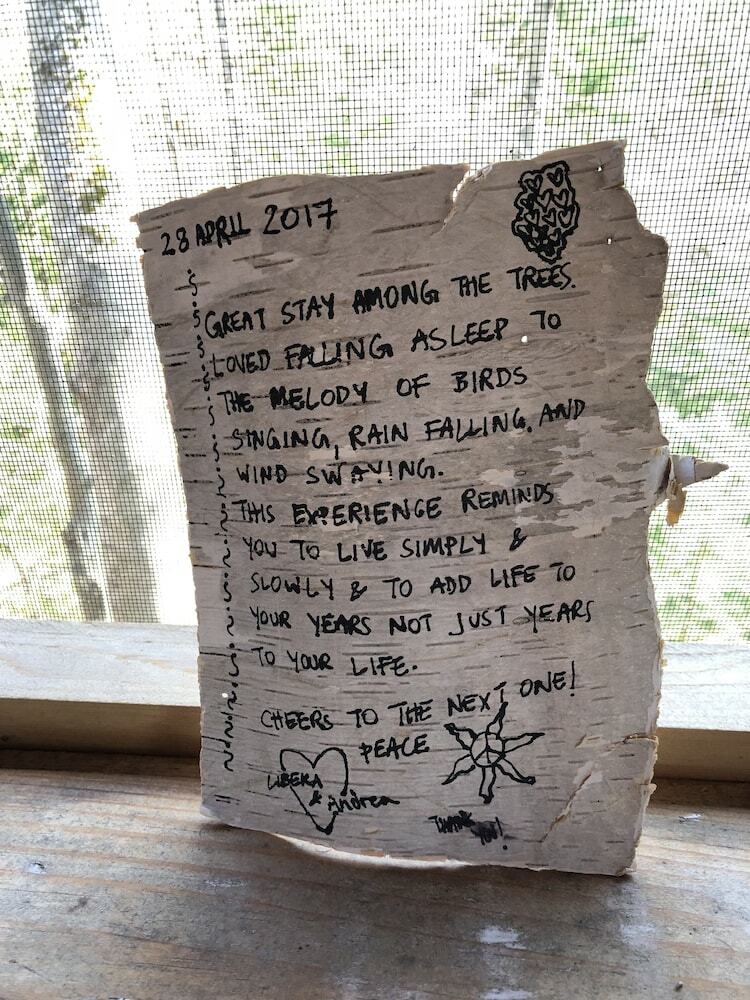 28 APRIL 2017
GREAT STAY AMONG THE TREES.
LOVED FALLING ASLEEP TO
THE MELODY OF BIRDS
SINGING, RAIN FALLING, AND
WIND SWAYING.
THIS EXPERIENCE REMINDS
YOU TO LIVE SIMPLY &
SLOWLY & TO ADD LIFE TO
YOUR YEARS NOT JUST YEARS
TO YOUR LIFE.
CHEERS TO THE NEXT ONE!
PEACE
LIBEKA
& Andrea
THANK
YOU!